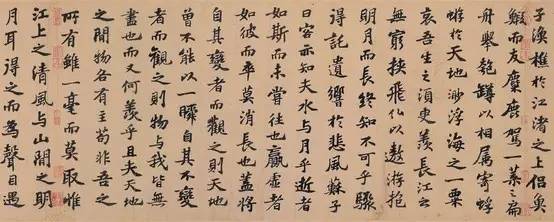 子漁樵於江渚之上侶魚
鰕而友麋鹿駕一葉之扁
舟舉匏罇以相属寄蜉
蝣於天地渺浮海之一粟
哀吾生之須臾羨長江之
無窮挾飛仙以遨游抱
明月而長終知不可乎驟
得託遺響於悲風蘇子
曰客亦知夫水与月乎逝者
如斯而未嘗往也贏虛者
如彼而卒莫消長也蓋將
自其變者而觀之則天地
曾不能以一瞬自其不變
者而觀之則物与我皆無
盡也而又何羨乎且夫天地
之間物各有主苟非吾之
所有雖一毫而莫取惟
江上之清風与山間之明
月耳得之而為聲目遇